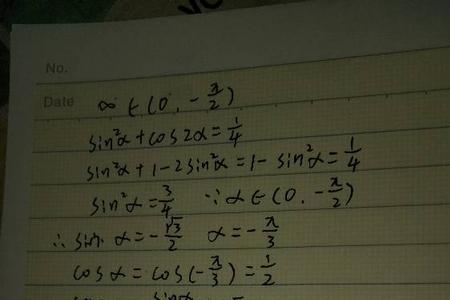 No.
Date
∞ ∈ (0, -π/2)
sin²α + cos2α = 1/4
sin²α + 1 - 2sin²α = 1 - sin²α = 1/4
sin²α = 3/4 ∵ α ∈ (0, -π/2)
∴ sin α = -√3/2 α = -π/3
cos α = cos(-π/3) = 1/2